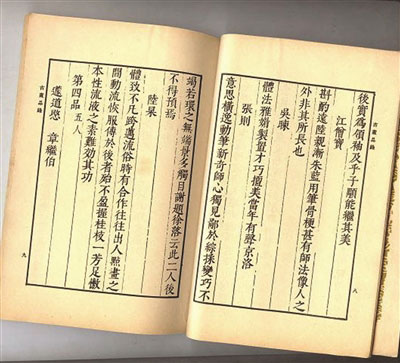 後實爲領袖及乎子顒能繼其美
江僧寶
斟酌遠陸親漸朱藍用筆骨梗甚有師法像人之
外非其所長也
吳暕
體法雅媚製置才巧擅美當年有聲京洛
張則
意思橫逸動筆新奇師心獨見鄙於綜採變巧不
古畫品錄
八
竭若環之無端景多觸目謝題徐落云此二人後
不得預焉
陸杲
體致不凡跨邁流俗時有合作往往出人點畫之
間動流恢服傳於後者始不盈握桂枝一芳足憿
本性流液之素難效其功
第四品五人
蘧道愍 章繼伯
古畫品錄
九